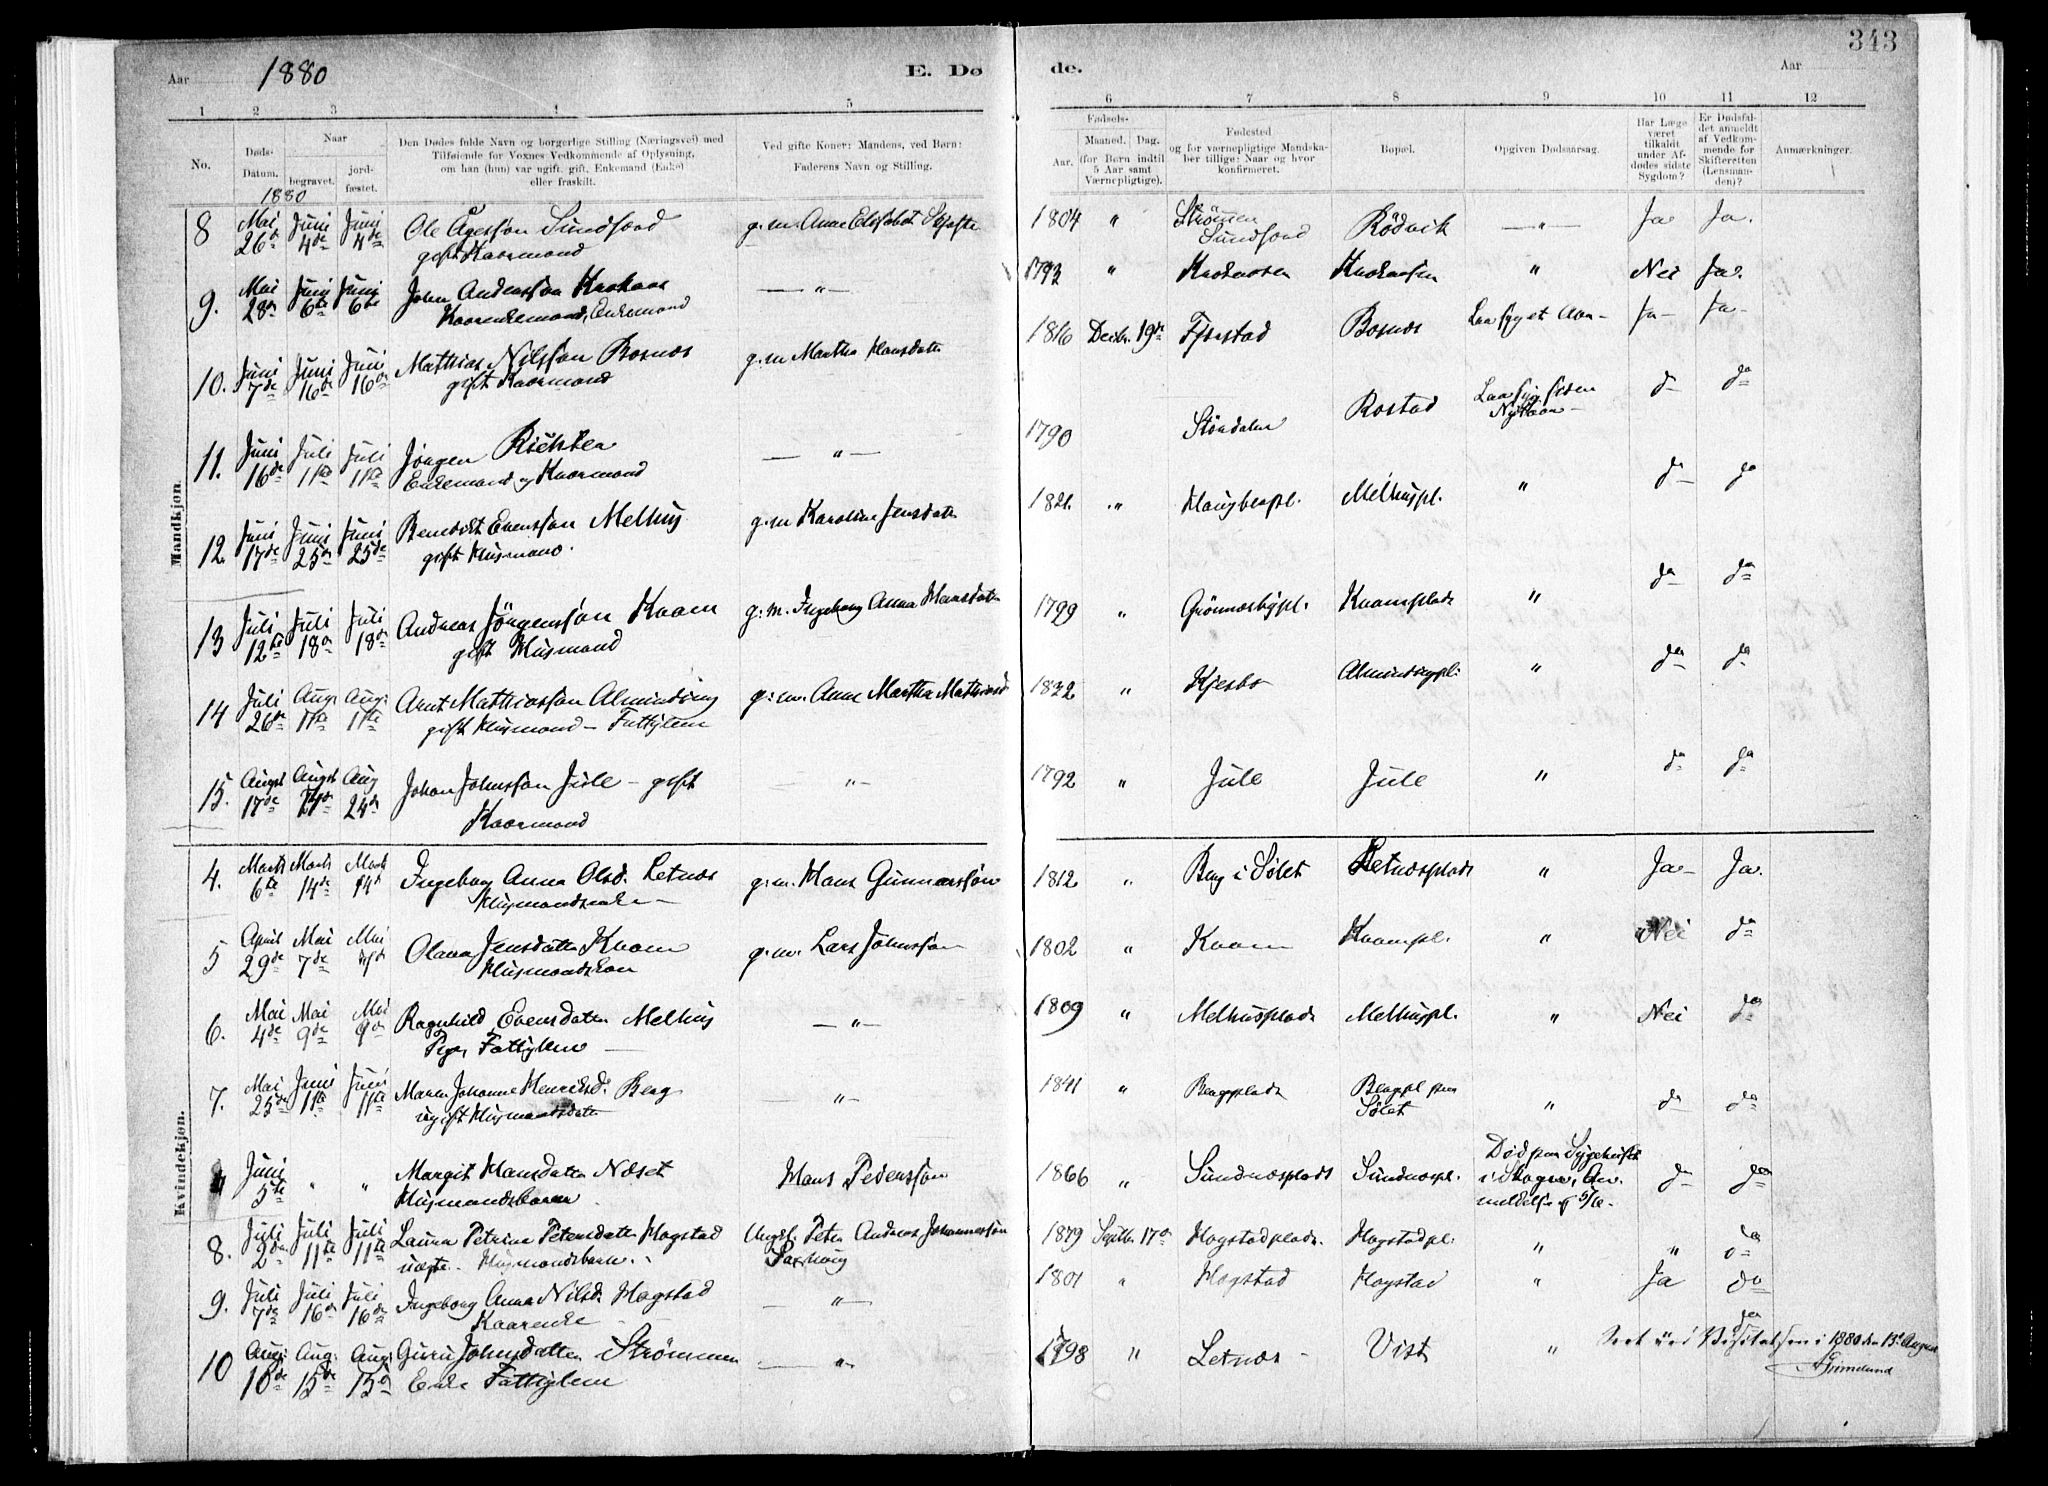 343
Aar 1880
E. Dø
de.
Aar
1 2 3 4 5
6 7 8 9 10 11 12
No.
Døds-
Datum.
Naar
begravet.
jord-
fæstet.
Den Dødes fulde Navn og borgerlige Stilling (Næringsvei) med
Tilføiende for Voxnes Vedkommende af Oplysning,
om han (hun) var ugift, gift, Enkemand (Enke)
eller fraskilt.
Ved gifte Koner: Mandens, ved Børn:
Faderens Navn og Stilling.
Fødsels-
Aar.
Maaned. Dag.
(for Børn indtil
5 Aar samt
Værnepligtige).
Fødested
og for værnepligtige Mandska-
ber tillige: Naar og hvor
konfirmeret.
Bopæl.
Opgiven Dødsaarsag.
Har Læge
været
tilkaldt
under Af-
dødes sidste
Sygdom?
Er Dødsfal-
det anmeldt
af Vedkom-
mende for
Skifteretten
(Lensman-
den)?
Anmærkninger.
1880
Mandkjøn.
8 Mai 26de Juni 4de Juni 4de Ole Aagessøn Sundfard g.m. Anne Elisabet 1804 " Strömen Sundfard Rödvik — " — Ja Ja.
gift Kaarmand
9. Mai 28de Juni 6te Juni 6te John Anderssøn — " — 1793 " " Nei Ja.
Kaarenkemand, Enkemand
10. Juni 7de Juni 16de Juni 16de Mathias Nilssøn Bosnæs g.m Martha Hansdatter 1816 Decbr. 19de Fjerstad Bosnæs Ja — Ja —
gift Kaarmand
11. Juni 16de Juli 11te Juli 11te Jörgen Richter — " — 1790 Stördalen Rostad do do
Enkemand og Kaarmand
12. Juni 17de Juni 25de Juni 25de Benedikt Evenssøn Melhus g.m Karoline Jensdatter 1821. " Haugbergpl. Melhuspl. " do do
gift Husmand.
13 Juli 12te Juli 18de Juli 18de Andreas Jörgenssøn Kvam g.m. Ingeborg Anna Hansdatter 1799 " Kvamsplads " do do
gift Husmand
14 Juli 26de Aug. 11te Aug. 11te Arnt Mathiassøn Alminding g.m. Anne Martha Mathiasd 1832 " Kjesbo Almindingpl. " do do
gift Husmand — Fattiglem
15. Augst 17de Augst 24de Aug 24de Johan Johnssøn Jule — gift — " — 1792 " Jule Jule " do do
Kaarmand
Kvindekjøn.
4. Marts 6te Marts 14de Marts 14d Ingeborg Anna Olsd. Letnæs g.m. Hans Gunnerssøn 1812 " Berg i Sölet Letnæsplads " Ja — Ja.
Husmandsenke —
5 April 29de Mai 7de Mai 7de Olava Jensdatter Kvam g.m. Lars Johnssøn 1802 " Kvam Kvampl. " Nei do
Husmandskone
6. Mai 4de Mai 9de Mai 9de Ragnhild Evensdatter Melhus — " — 1809 " Melhusplads Melhuspl. " Nei do
Pige, Fattiglem —
7. Mai 25de Juni 11te Juni 11te Maren Johanne Henriksd. Berg — " — 1841 " Bergsplads Bergpl paa Sölet " do do
ugift Husmandsdatter
Juni 5te " " Margit Hansdatter Næset Hans Pedersson 1866 " Sundnæsplads Sundnæspl. Död paa Sygehuset i Skogn, An- meldelse af 5/6. do do
Husmandsbarn
8. Juli 2den Juli 11te Juli 11te Laura Petrine Petersdatter Hogstad Ungk. Peter Andreas Johannessøn Saxhaug 1879 Septbr. 17de Hogstadplads. Hogstadpl. " " do
uægte. Husmandsbarn.
9. Juli 7de Juli 16de Juli 16de Ingeborg Anna Nilsd. Hogstad — " — 1801 " Hogstad Hogstad " Ja do
Kaarenke
10 Aug. 10de Aug. 15de Aug. 15de Guru Johnsdatter Strömmen — " — 1798 " Letnæs Vist " do
Enke Fattiglem
Seet ved Visitatsen i 1880 den 13de August
Grimelund